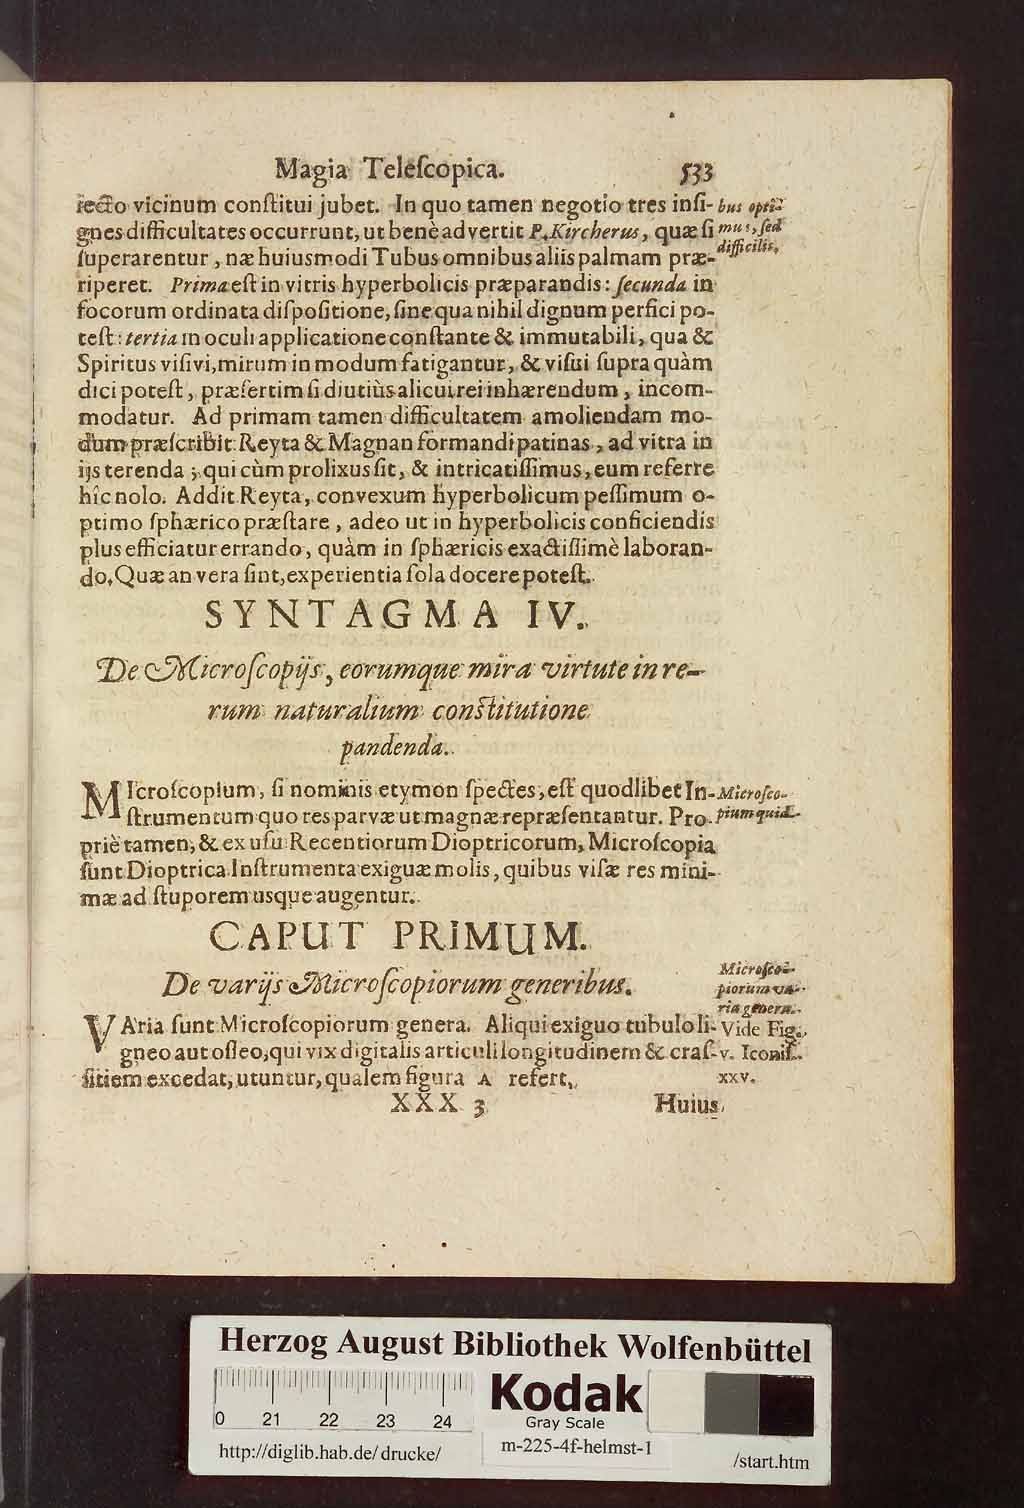 Magia Teleſcopica. 533
iecto vicinum conſtitui jubet. In quo tamen negotio tres inſi-
gnes difficultates occurrunt, ut benè advertit P. Kircherus, quæ ſi
ſuperarentur, næ huiusmodi Tubus omnibus aliis palmam præ-
riperet. Prima eſt in vitris hyperbolicis præparandis: ſecunda in
focorum ordinata diſpoſitione, ſine qua nihil dignum perfici po-
teſt: tertia in oculi applicatione conſtante & immutabili, qua &
Spiritus viſivi, mirum in modum fatigantur, & viſui ſupra quàm
dici poteſt, præſertim ſi diutiùs alicui rei inhærendum, incom-
modatur. Ad primam tamen difficultatem amoliendam mo-
dum præſcribit Reyta & Magnan formandi patinas, ad vitra in
ijs terenda; qui cùm prolixus ſit, & intricatiſſimus, eum referre
hîc nolo. Addit Reyta, convexum hyperbolicum peſſimum o-
ptimo ſphærico præſtare, adeo ut in hyperbolicis conficiendis
plus efficiatur errando, quàm in ſphæricis exactiſſimè laboran-
do. Quæ an vera ſint, experientia ſola docere poteſt.
bus opti-
mus, ſed
difficilis.
SYNTAGMA IV.
De Microſcopijs, eorumque mira virtute in re-
rum naturalium conſtitutione
pandenda.
MIcroſcopium, ſi nominis etymon ſpectes, eſt quodlibet In-
ſtrumentum quo res parvæ ut magnæ repræſentantur. Pro-
priè tamen, & ex uſu Recentiorum Dioptricorum, Microſcopia
ſunt Dioptrica Inſtrumenta exiguæ molis, quibus viſæ res mini-
mæ ad ſtuporem usque augentur.
Microſco-
pium quid.
CAPUT PRIMUM.
De varijs Microſcopiorum generibus.
VAria ſunt Microſcopiorum genera. Aliqui exiguo tubulo li-
gneo aut oſſeo, qui vix digitalis articuli longitudinem & craſ-
ſitiem excedat, utuntur, qualem figura A refert.
Microſco-
piorum va-
ria genera.
Vide Fig.
v. Iconiſ.
xxv.
XXX 3 Huius
Herzog August Bibliothek Wolfenbüttel
0 21 22 23 24
Kodak
Gray Scale
http://diglib.hab.de/drucke/ m-225-4f-helmst-1 /start.htm